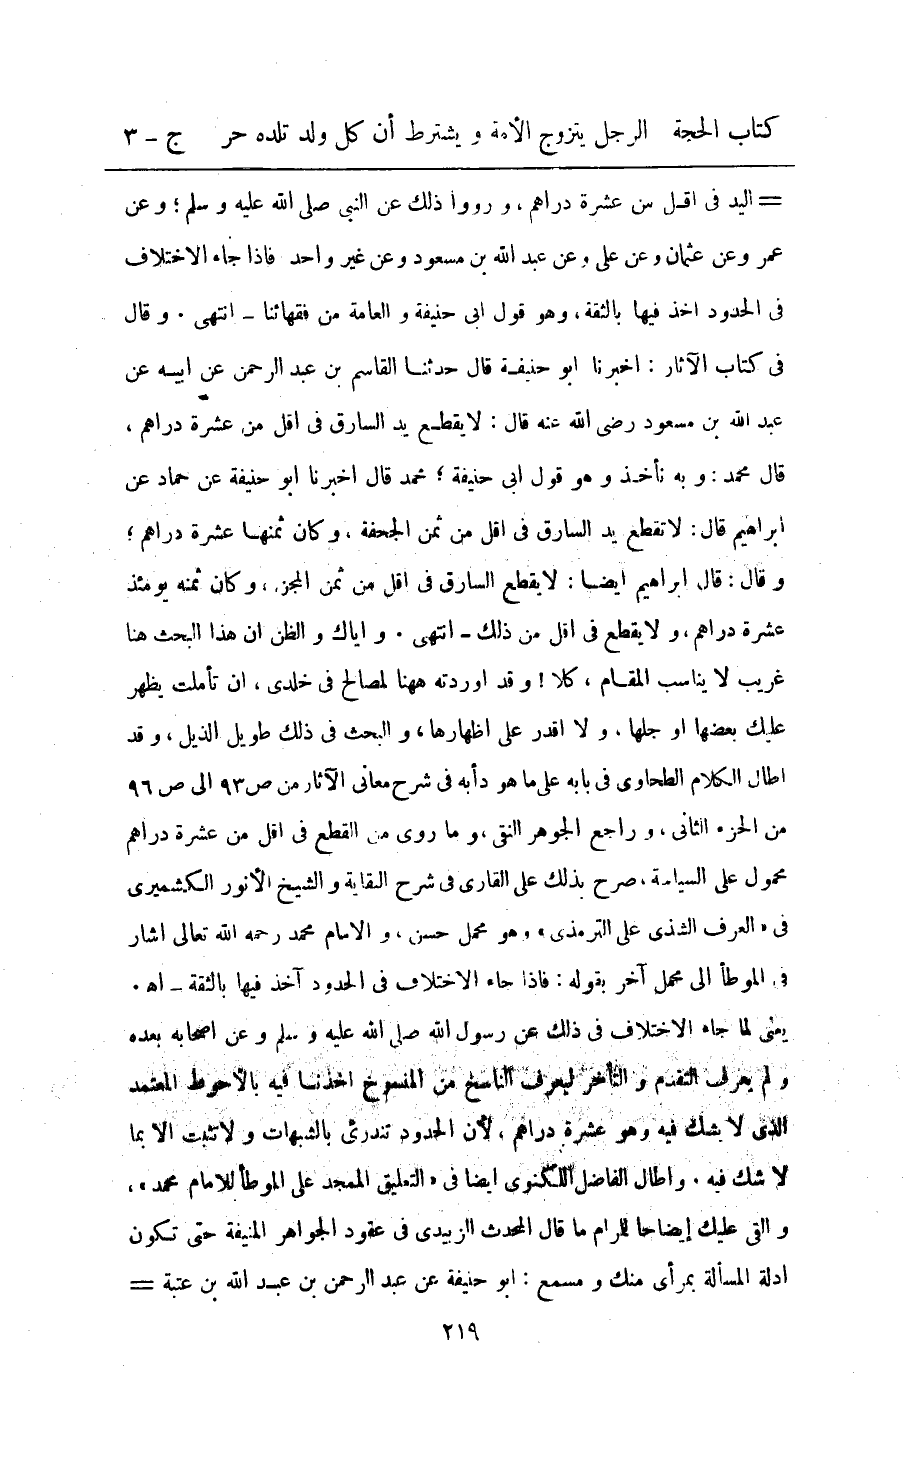 كتاب الحجة الرجل يتزوج الأمة و يشترط أن كل ولد تلده حر ج - ٣
= اليد فى اقل من عشرة دراهم ، و رووا ذلك عن النبى صلى الله عليه و سلم ؛ و عن
عمر وعن عثمان و عن على وعن عبد الله بن مسعود وعن غير واحد فاذا جاء الاختلاف
فى الحدود اخذ فيها بالثقة ، وهو قول ابى حنيفة و العامة من فقهائنا - انتهى . و قال
فى كتاب الآثار : اخبرنا ابو حنيفة قال حدثنا القاسم بن عبد الرحمن عن ابيه عن
عبد الله بن مسعود رضى الله عنه قال : لايقطع يد السارق فى اقل من عشرة دراهم ،
قال محمد : و به نأخذ و هو قول ابى حنيفة ؛ محمد قال اخبرنا ابو حنيفة عن حماد عن
ابراهيم قال : لاتقطع يد السارق فى اقل من ثمن الجحفة ، وكان ثمنها عشرة دراهم ؛
و قال : قال ابراهيم ايضا : لايقطع السارق فى اقل من ثمن المجن ، وكان ثمنه يومئذ
عشرة دراهم ، و لايقطع فى اقل من ذلك - انتهى . و اياك و الظن ان هذا البحث هنا
غريب لا يناسب المقام ، كلا ! و قد اوردته ههنا لمصالح فى خلدى ، ان تأملت يظهر
عليك بعضها او جلها ، و لا اقدر على اظهارها ، و البحث فى ذلك طويل الذيل ، و قد
اطال الكلام الطحاوى فى بابه على ما هو دأبه فى شرح معانى الآثار من ص ٩٣ الى ص ٩٦
من الجزء الثانى ، و راجع الجوهر النقى ، و ما روى من القطع فى اقل من عشرة دراهم
محمول على السياسة ، صرح بذلك على القارى فى شرح النقاية و الشيخ الأنور الكشميرى
فى «العرف الشذى على الترمذى» وهو محمل حسن ، و الامام محمد رحمه الله تعالى اشار
فى الموطأ الى محمل آخر بقوله : فاذا جاء الاختلاف فى الحدود آخذ فيها بالثقة - اه .
يعنى لما جاء الاختلاف فى ذلك عن رسول الله صلى الله عليه و سلم و عن اصحابه بعده
و لم يعرف التقدم و التأخر ليعرف الناسخ من المنسوخ اخذنا فيه بالأحوط المعتمد
الذى لا شك فيه وهو عشرة دراهم ، لأن الحدود تندرئ بالشبهات و لاتثبت الا بما
لا شك فيه . و اطال الفاضل اللكنوى ايضا فى «التعليق الممجد على الموطأ للامام محمد» ،
و القى عليك إيضاحا للرام ما قال المحدث الزبيدى فى عقود الجواهر المنيفة حتى تكون
ادلة المسألة بمرأى منك و مسمع : ابو حنيفة عن عبد الرحمن بن عبد الله بن عتبة =
٢١٩